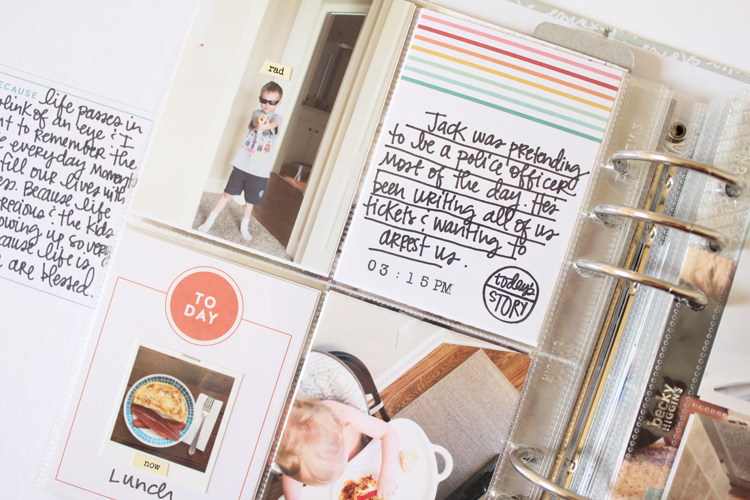 BECAUSE life passes in
blink of an eye & I
to remember the
everyday moments
fill our lives with
Because life
precious & the kids
growing up so very
because life is
are blessed.
rad
Jack was pretending
to be a police officer
most of the day. Hes
been writing all of us
tickets & wanting to
arrest us.
03:15PM
today's
STORY
TO
DAY
now
Lunch
becky
HIGGINS